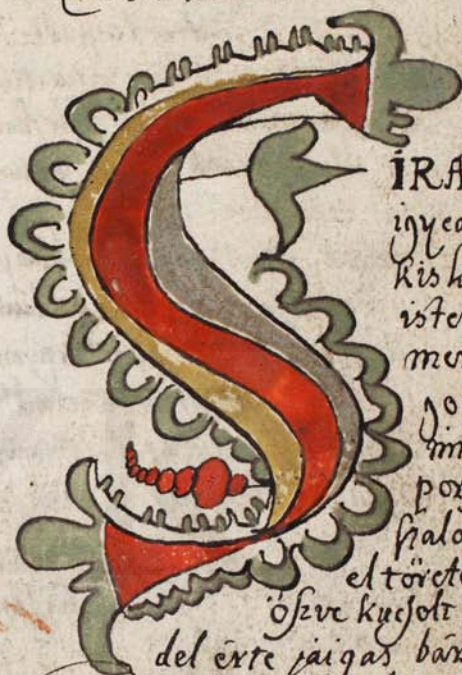 SIRA
igyeo
kis k
iste
mer
go
min
por
szalo
el töret
öszve kucsolt
del érte jaigas bár